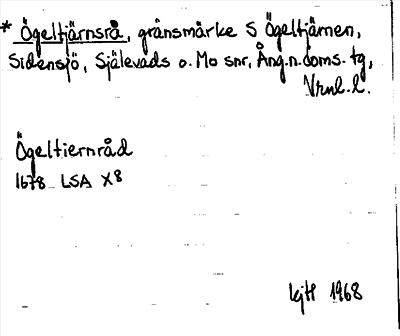 * Ögeltjärnsrå, gränsmärke S Ögeltjärnen,
Sidensjö, Själevads o. Mo snr, Ång.n.doms.tg,
Vrnl.l.
Ögeltiernråd
1678 LSA X8
1968